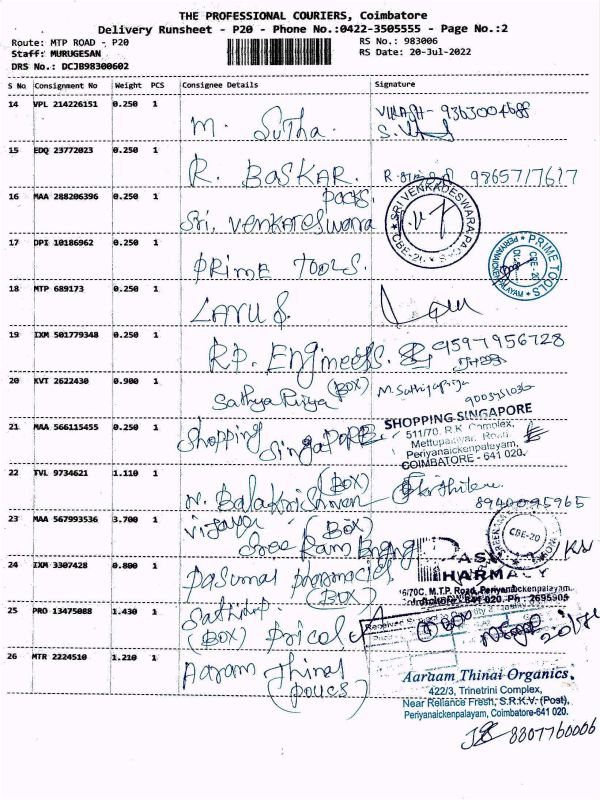 THE PROFESSIONAL COURIERS, Coimbatore
Delivery Runsheet - P20 - Phone No.:0422-3505555 - Page No.:2
Route: MTP ROAD - P20
RS No.: 983006
Staff: MURUGESAN
RS Date: 20-Jul-2022
DRS No.: DCJB98300602
S No Consignment No Weight PCS Consignee Details Signature
14 VPL 214226151 0.250 1 M. Sutha.
15 EDQ 23772023 0.250 1 R. BASKAR. 9865717617
16 MAA 288206396 0.250 1 Sri. Venkateswara
SRI VENKADESWARA CBE-20
17 DPI 10186962 0.250 1 PRIME TOOLS.
PRIME TOOLS CBE-20 PERIYANAICKENPALAYAM
18 MTP 689173 0.250 1 LAVU S.
19 IXM 501779348 0.250 1 RP. Engineers. 9597956728
20 KVT 2622430 0.900 1 Sathya Priya (BOX) M. Sathiyapriya
21 MAA 566115455 0.250 1 Shopping Singapore
SHOPPING SINGAPORE
511/70, R.K. Complex,
Mettupalayam Road,
Periyanaickenpalayam,
COIMBATORE - 641 020.
22 TVL 9734621 1.110 1 N. Balakrishnan (BOX)
8940095965
23 MAA 567993536 3.700 1 Vijaya (BOX)
Sree Ram Engg
CBE-20
24 IXM 3307428 0.800 1 Pasumai pharmacies (BOX)
PHARMACY
M.T.P. Road, Periyanaickenpalayam,
641 020. Ph : 2695909
25 PRO 13475088 1.430 1 (BOX) Pricol
26 MTR 2224510 1.210 1 Aaram Thinai
Aaraam Thinai Organics,
422/3, Trinetrini Complex,
Near Reliance Fresh, S.R.K.V. (Post),
Periyanaickenpalayam, Coimbatore-641 020.
8807760006